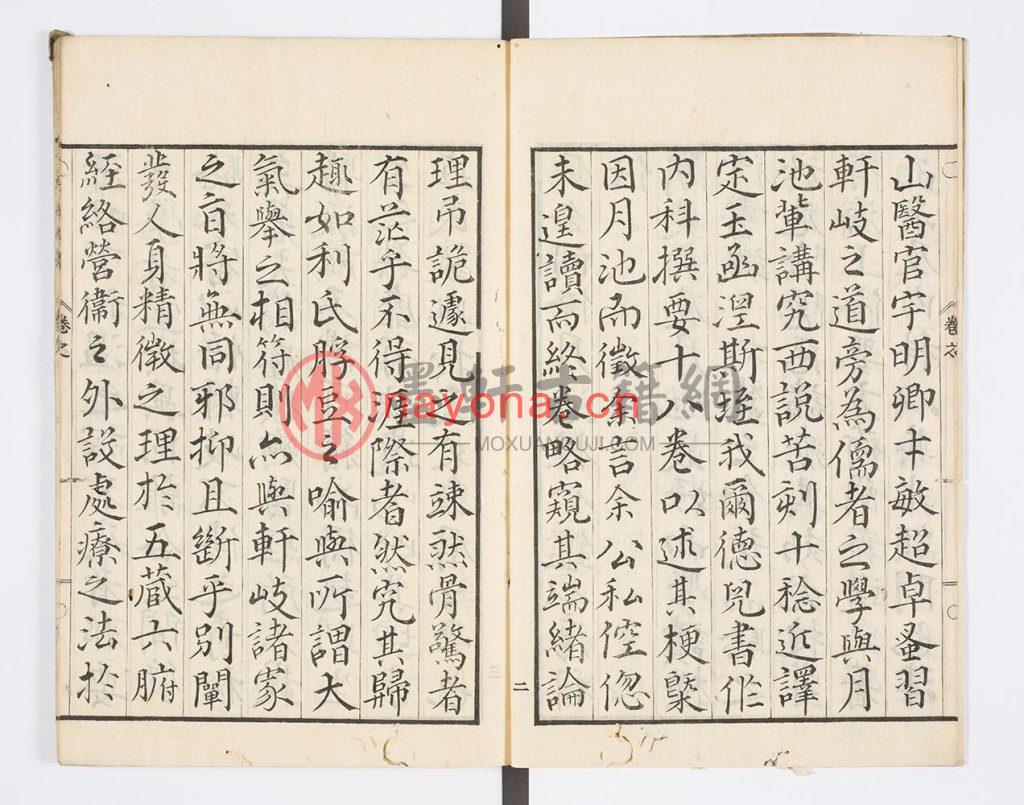 山醫官宇明卿才敏超卓蚤習
軒岐之道旁為儒者之學與月
池輩講究西說苦刻十稔近譯
定玉函涅斯垤我爾德兒書作
内科撰要十八卷以述其梗槩
因月池而徵余言余公私倥偬
未遑讀而終卷略窺其端緒論
理吊詭遽見之有竦然骨驚者
有茫乎不得涯際者然究其歸
趣如利氏脬豆之喻與所謂大
氣舉之相符則亦與軒岐諸家
之旨將無同邪抑且斷乎別闡
發人身精徵之理於五藏六腑
經絡營衞之外設處療之法於
卷之
卷之
二
三
墨軒古籍網
nayona.cn
MOXUANGUJI.COM